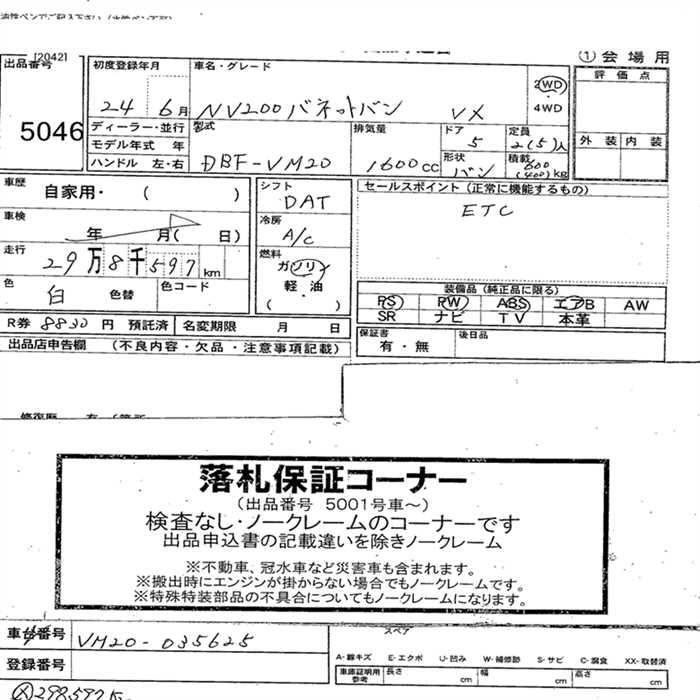 [2042]
① 会場用
出品番号
5046
初度登録年月
24 6月
車名・グレード
NV200バネットバン VX
2WD
4WD
評価点
外装 内装
ディーラー・並行
モデル年式 年
ハンドル 左・右
型式
DBF-VM20
排気量
1600cc
ドア
5
形状
バン
定員
2(5)人
積載
600
(400)kg
車歴
自家用・ ( )
車検
年 月( 日)
走行
29万8千597km
色
白
色替
色コード
シフト
DAT
冷房
A/C
燃料
ガソリン
軽・油
( )
セールスポイント (正常に機能するもの)
ETC
装備品 (純正品に限る)
PS PW ABS エアB AW
SR ナビ TV 本革
R券 8830 円 預託済
名変期限 月 日
保証書
有・無
後日品
出品店申告欄 (不良内容・欠品・注意事項記載)
落札保証コーナー
(出品番号 5001号車~)
検査なし・ノークレームのコーナーです
出品申込書の記載違いを除きノークレーム
※不動車、冠水車など災害車も含まれます。
※搬出時にエンジンが掛からない場合でもノークレームです。
※特殊特装部品の不具合についてもノークレームになります。
車台番号
VM20-035625
登録番号
スペア
A-線キズ E-エクボ U-凹み W-補修跡 S-サビ C-腐食 XX-取替済
車庫証明用
参考
長さ cm 幅 cm 高さ cm